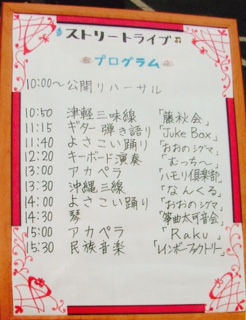 ストリートライブ♬
プログラム
10:00～公開リハーサル
10:50 津軽三味線 「藤秋会」
11:15 ギター弾き語り 「Juke Box」
11:40 よさこい踊り 「おおのシグマ」
12:20 キーボード演奏 「むっち～」
13:00 アカペラ 「ハモリ倶楽部」
13:30 沖縄三線 「なんくる」
14:00 よさこい踊り 「おおのシグマ」
14:30 琴 「箏曲太可音会」
15:00 アカペラ 「Raku」
15:30 民族音楽 「レインボーファクトリー」